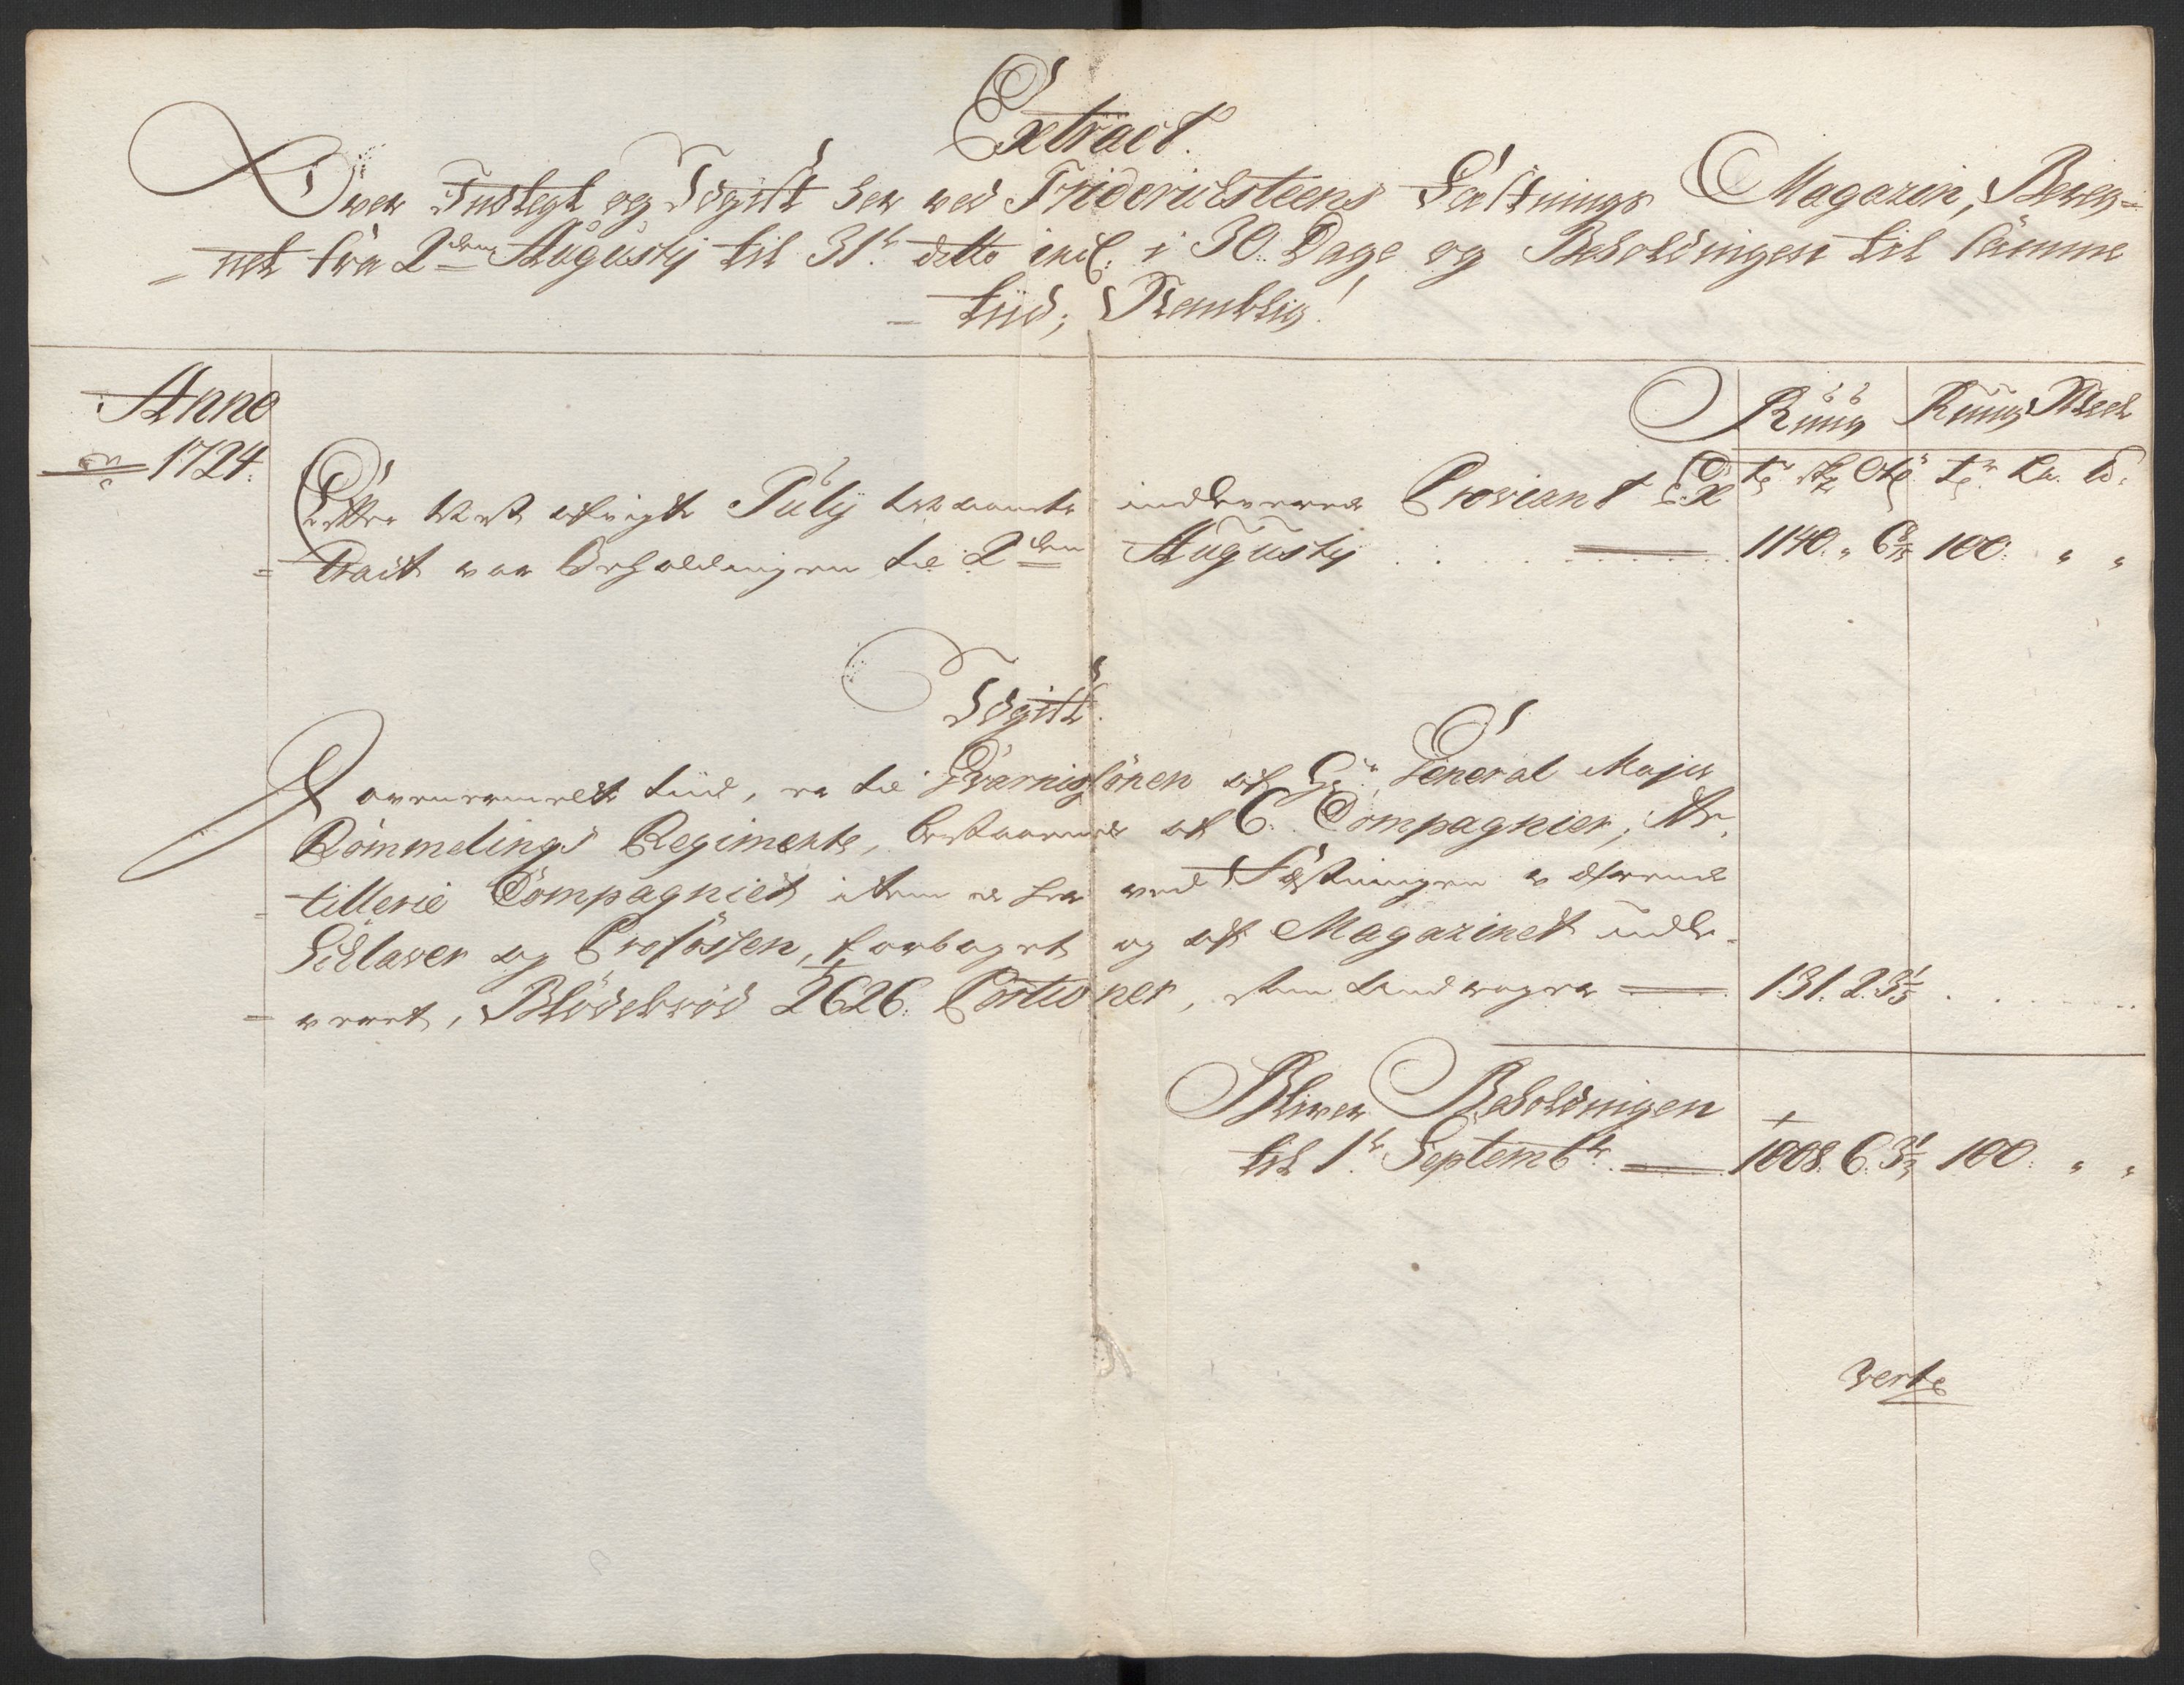 Extract.
Over Indtegt og Udgift her ved Friderichsteens Fæstnings Magazin, Bereg=
=net fra 2den Augusty til 31te ditto incl. i 30. Dage og Beholdingen til samme
tiid; Nemblig!
Anno
1724.
Rúúg Rúúg Meel
Efter sidst afvigte Júly Maanets indleverede Proviant Ex
=tract var Beholdningen til 2den Augusty 1140. „ 6 100. „ „
Udgift.
J ovenmeldte tiid, er til Gvarnisonen af Hr. General Major
Römmelings Regimente, bestaaende af 6. Compagnier, Ar,
=tillerie Compagniet item de her ved Fæstningen værende
Sclaver og Profossen, forbaget og af Magazinet udle=
=veret, Blödebröd 2626. Portioner, som Andrager 131. 2. 3 1/5
Bliver Beholdningen
til 1te Septembr. 1008. 6. 3 100. „ „
verte